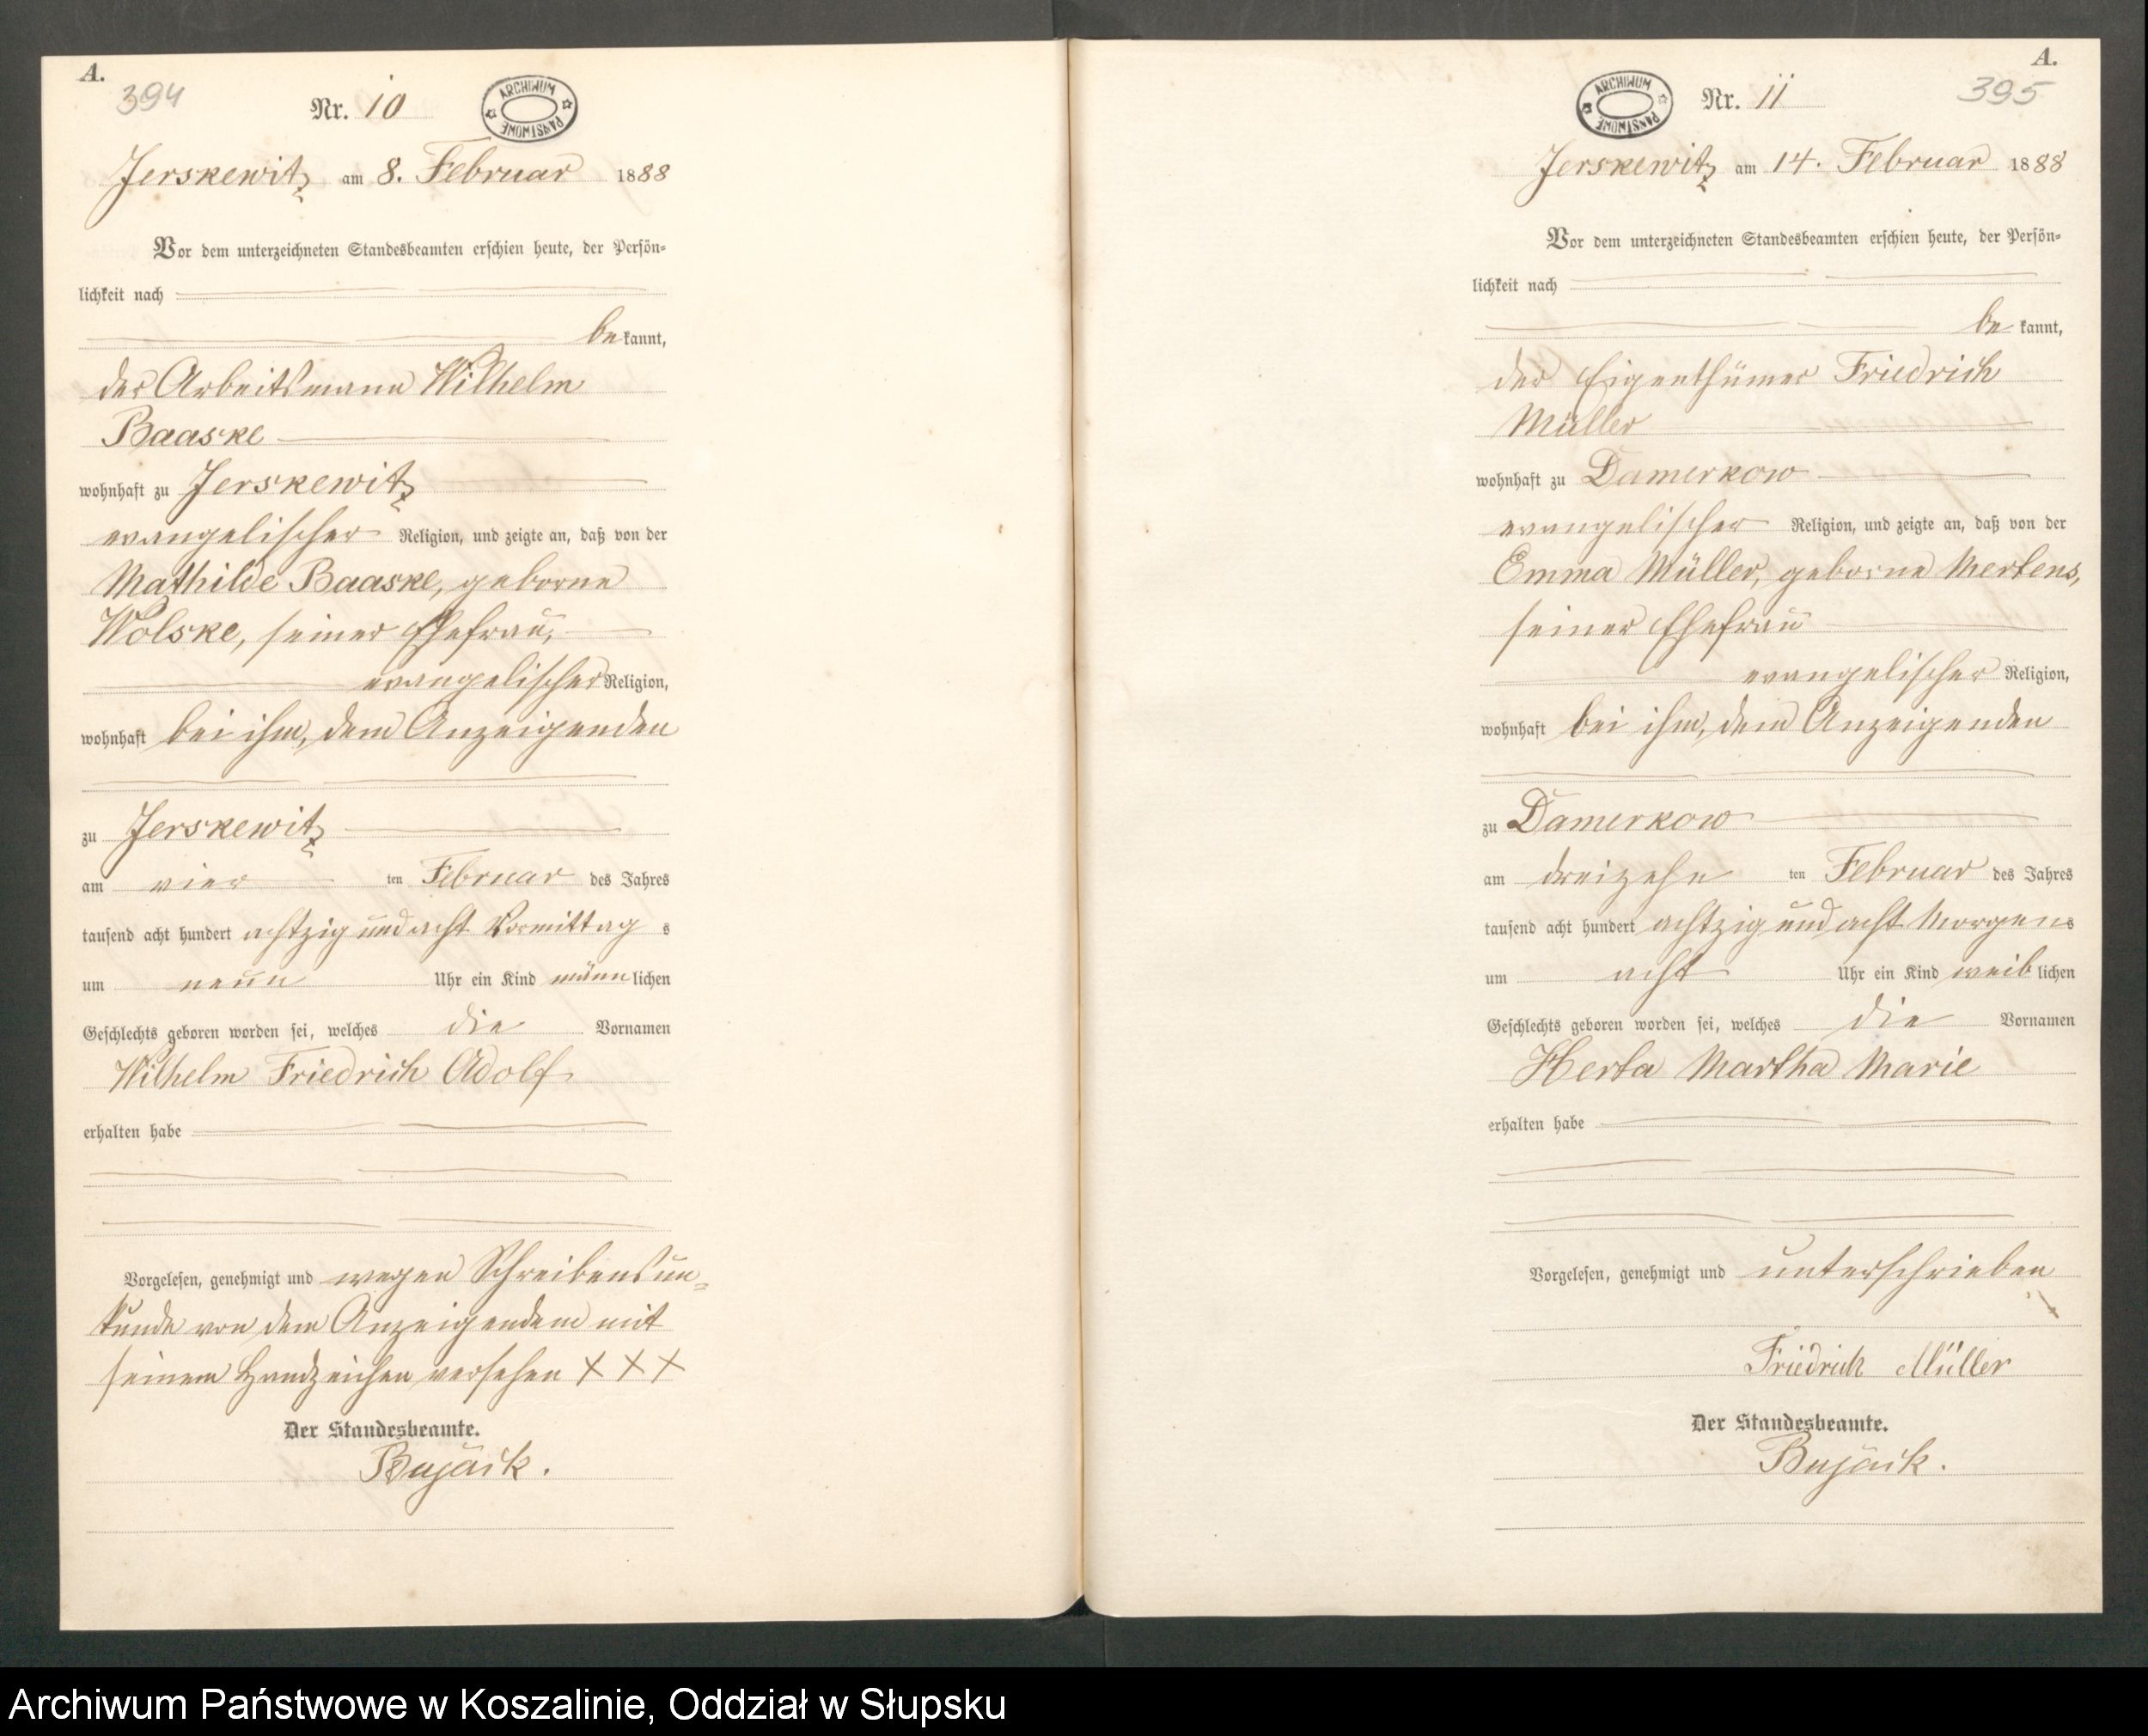 A.
394
Nr. 10
ARCHIWUM PAŃSTWOWE
Jerskewitz am 8. Februar 1888
Vor dem unterzeichneten Standesbeamten erschien heute, der Persön-
lichkeit nach
bekannt,
der Arbeitsmann Wilhelm
Baaske
wohnhaft zu Jerskewitz
evangelischer Religion, und zeigte an, daß von der
Mathilde Baaske, geborne
Wolske, seiner Ehefrau,
evangelischer Religion,
wohnhaft bei ihm, dem Anzeigenden
zu Jerskewitz
am vier ten Februar des Jahres
tausend acht hundert achtzig und acht Vormittag s
um neun Uhr ein Kind männlichen
Geschlechts geboren worden sei, welches die Vornamen
Wilhelm Friedrich Adolf
erhalten habe
Vorgelesen, genehmigt und wegen Schreibensun=
kunde von dem Anzeigendem mit
seinem Handzeichen versehen XXX
Der Standesbeamte.
Bujack.
A.
395
Nr. 11
ARCHIWUM PAŃSTWOWE
Jerskewitz am 14. Februar 1888
Vor dem unterzeichneten Standesbeamten erschien heute, der Persön-
lichkeit nach
bekannt,
der Eigenthümer Friedrich
Müller
wohnhaft zu Damerkow
evangelischer Religion, und zeigte an, daß von der
Emma Müller, geborne Mertens,
seiner Ehefrau
evangelischer Religion,
wohnhaft bei ihm, dem Anzeigenden
zu Damerkow
am dreizehn ten Februar des Jahres
tausend acht hundert achtzig und acht Morgens
um acht Uhr ein Kind weiblichen
Geschlechts geboren worden sei, welches die Vornamen
Herta Martha Marie
erhalten habe
Vorgelesen, genehmigt und unterschrieben
Friedrich Müller
Der Standesbeamte.
Bujack.
Archiwum Państwowe w Koszalinie, Oddział w Słupsku